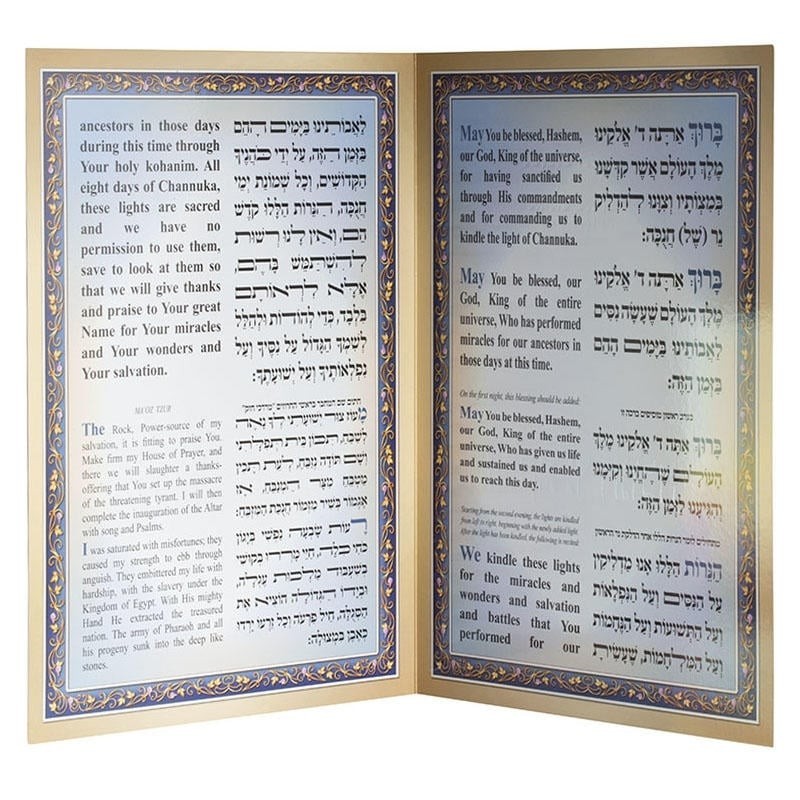 May You be blessed, Hashem,
our God, King of the universe,
for having sanctified us
through His commandments
and for commanding us to
kindle the light of Channuka.
May You be blessed, our
God, King of the entire
universe, Who has performed
miracles for our ancestors in
those days at this time.
On the first night, this blessing should be added:
May You be blessed, Hashem,
our God, King of the entire
universe, Who has given us life
and sustained us and enabled
us to reach this day.
Starting from the second evening, the lights are kindled
from left to right, beginning with the newly added light.
After the light has been kindled, the following is recited:
We kindle these lights
for the miracles and
wonders and salvation
and battles that You
performed for our
בָּרוּךְ אַתָּה ד' אֱלֹקֵינוּ
מֶלֶךְ הָעוֹלָם אֲשֶׁר קִדְּשָׁנוּ
בְּמִצְוֹתָיו וְצִוָּנוּ לְהַדְלִיק
נֵר (שֶׁל) חֲנֻכָּה:
בָּרוּךְ אַתָּה ד' אֱלֹקֵינוּ
מֶלֶךְ הָעוֹלָם שֶׁעָשָׂה נִסִּים
לַאֲבוֹתֵינוּ בַּיָּמִים הָהֵם
בַּזְּמַן הַזֶּה:
בערב ראשון מוסיפים ברכה זו
בָּרוּךְ אַתָּה ד' אֱלֹקֵינוּ מֶלֶךְ
הָעוֹלָם שֶׁהֶחֱיָנוּ וְקִיְּמָנוּ
וְהִגִּיעָנוּ לַזְּמַן הַזֶּה:
הַנֵּרוֹת הַלָּלוּ אָנוּ מַדְלִיקִין
עַל הַנִּסִּים וְעַל הַנִּפְלָאוֹת
וְעַל הַתְּשׁוּעוֹת וְעַל הַנֶּחָמוֹת
וְעַל הַמִּלְחָמוֹת, שֶׁעָשִׂיתָ
ancestors in those days
during this time through
Your holy kohanim. All
eight days of Channuka,
these lights are sacred
and we have no
permission to use them,
save to look at them so
that we will give thanks
and praise to Your great
Name for Your miracles
and Your wonders and
Your salvation.
MA'OZ TZUR
The Rock, Power-source of my
salvation, it is fitting to praise You.
Make firm my House of Prayer, and
there we will slaughter a thanks-
offering that You set up the massacre
of the threatening tyrant. I will then
complete the inauguration of the Altar
with song and Psalms.
I was saturated with misfortunes; they
caused my strength to ebb through
anguish. They embittered my life with
hardship, with the slavery under the
Kingdom of Egypt. With His mighty
Hand He extracted the treasured
nation. The army of Pharaoh and all
his progeny sunk into the deep like
stones.
לַאֲבוֹתֵינוּ בַּיָּמִים הָהֵם
בַּזְּמַן הַזֶּה, עַל יְדֵי כֹּהֲנֶיךָ
הַקְּדוֹשִׁים, וְכָל שְׁמוֹנַת יְמֵי
חֲנֻכָּה, הַנֵּרוֹת הַלָּלוּ קֹדֶשׁ
הֵם, וְאֵין לָנוּ רְשׁוּת
לְהִשְׁתַּמֵּשׁ בָּהֶם,
אֶלָּא לִרְאוֹתָם
בִּלְבָד, כְּדֵי לְהוֹדוֹת וּלְהַלֵּל
לְשִׁמְךָ הַגָּדוֹל עַל נִסֶּיךָ וְעַל
נִפְלְאוֹתֶיךָ וְעַל יְשׁוּעָתֶךָ:
חתום שם המחבר בראשי החרוזים "מרדכי חזק"
מָעוֹז צוּר יְשׁוּעָתִי לְךָ נָאֶה
לְשַׁבֵּחַ, תִּכּוֹן בֵּית תְּפִלָּתִי
וְשָׁם תּוֹדָה נְזַבֵּחַ, לְעֵת תָּכִין
מַטְבֵּחַ מִצָּר הַמְנַבֵּחַ, אָז
אֶגְמוֹר בְּשִׁיר מִזְמוֹר חֲנֻכַּת הַמִּזְבֵּחַ:
רָעוֹת שָׂבְעָה נַפְשִׁי בְּיָגוֹן
כֹּחִי כָּלָה, חַיַּי מֵרְרוּ בְּקוֹשִׁי
בְּשִׁעְבּוּד מַלְכוּת עֶגְלָה,
וּבְיָדוֹ הַגְּדוֹלָה הוֹצִיא אֶת
הַסְּגֻלָּה, חֵיל פַּרְעֹה וְכָל זַרְעוֹ יָרְדוּ
כְּאֶבֶן בִּמְצוּלָה: